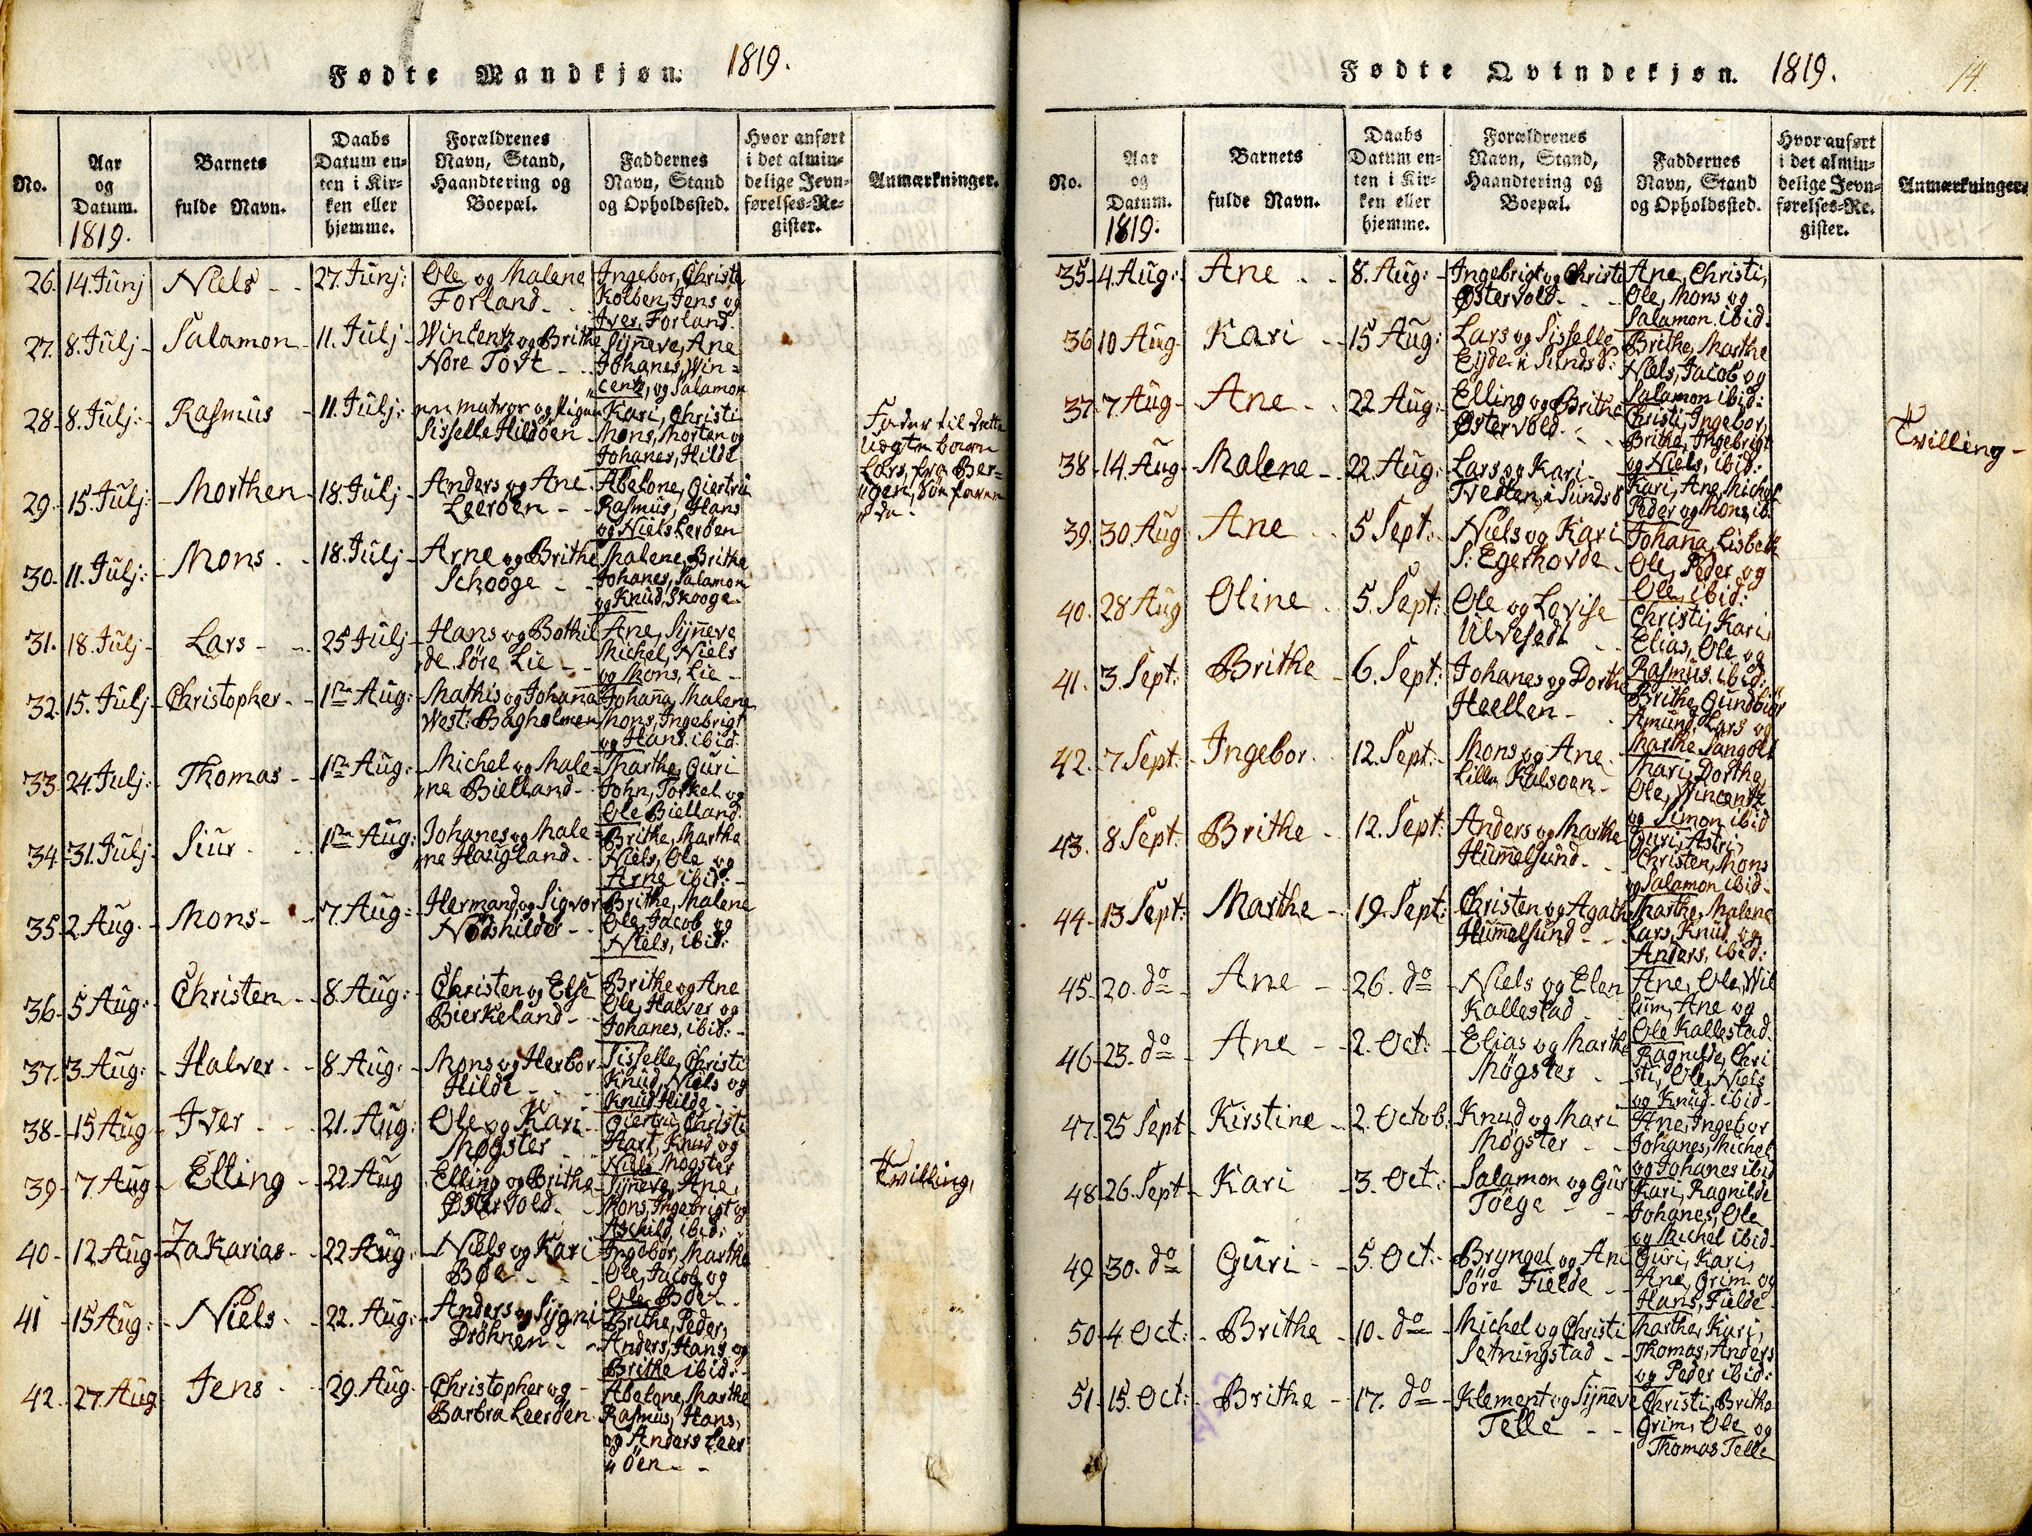 Fødte Mandkjøn. 1819.
No.
Aar og Datum. 1819.
Barnets fulde Navn.
Daabs Datum enten i Kirken eller hjemme.
Forældrenes Navn, Stand, Haandtering og Boepæl.
Faddernes Navn, Stand og Opholdssted.
Hvor anført i det almindelige Jevnførelses-Register.
Anmærkninger.
26. 14. Junj Niels - - 27. Junj: Ole og Malene Forland - - Ingebor, Christe Kolben, Jens og Iver, Forland.
27. 8. Julj - Salamon - 11. Julj - Wincentz og Brithe Nore Tovt - - Sijneve, Ane Johanes, Win= centz, og Salamon
28 - 8. Julj: - Rasmus - 11. Julj: Sisselle Hildöen - Kari, Christi Mons, Morten og Johanes, Hilde
29. 15. Julj: - Morthen - 18. Julj - Anders og Ane Leeröen - - Abelone, Giertru Rasmus, Hans og Niels Leröen
30. 11. Julj: - Mons - - 18. Julj - Arne og Brithe Schooge - - Malene, Brithe Johanes, Salamon og Knud, Skooge.
31. 18. Julj - Lars - - 25 Julj - Hans og Bothil de Söre Lie - - Ane, Sijneve Michel, Niels og Mons, Lie -
32. 15. Julj - Christopher - - 1ste Aug: Mathis og Johana West: Bagholmen Johana, Malene Mons, Ingebrigt og Hans. ibid:
33 24. Julj: - Thomas - 1ste Aug: Michel og Male= ne Bielland - Marthe, Guri John, Torkel og Ole Bielland:
34 - 31. Julj - Siur - - 1ste Aug: Johanes og Male= ne Havgland - - Brithe, Marthe Niels, Ole og Arne ibid: -
35. 2. Aug. - Mons - - 7. Aug: - Hermand og Sigvor Nödshilder - - Brithe, Malene Ole, Jacob og Niels, ibid:
36 - 5 Aug: - Christen - - 8. Aug: - Christen og Else Bierkeland - - Brithe og Ane Ole, Halver og Johanes, ibid: -
37. 3. Aug: - Halver - - 8. Aug: - Mons og Herbor Hilde - - Sisselle, Christi Knud, Niels og Knud Hilde -
38 - 15 Aug - Iver - - 21. Aug: Ole og Kari Møgster - Giertru, Christi Aart, Knud og Niels Møgster
39 - 7 Aug - Elling - 22 Aug Elling og Brithe Østervold - - Sijneve, Ane, Mons, Ingebrigt og Aschild, ibid: Tvilling,
40 - 12 Aug - Zakarias - - 22 Aug: - Niels og Kari Böe - - Ingebor, Marthe Ole, Jacob og Ole Böe -
41 - 15 Aug: - Niels - - 22. Aug: - Anders og Sygni Dröhnen - - Brithe, Peder, Anders, Hans og Brithe ibid: -
42 - 27. Aug Jens - - 29. Aug. Christopher og Barbra Leeröen - Abelone, Marthe Rasmus, Hans, og Anders Leer öen - -
Fader til dette Uegte barn Lars, fra Ber= gen,
Fødte Qvindekjøn. 1819. 14.
No.
Aar og Datum. 1819.
Barnets fulde Navn.
Daabs Datum enten i Kirken eller hjemme.
Forældrenes Navn, Stand, Haandtering og Boepæl.
Faddernes Navn, Stand og Opholdssted.
Hvor anført i det almindelige Jevnførelses-Register.
Anmærkninger.
35 - 4. Aug: - Ane - - 8. Aug: - Ingebrigt og Christi Østervold - - Ane, Christi, Ole, Mons og Salamon ibid:
36 10 Aug - Kari - - 15 Aug: Lars og Sisselle Eijde i Sunds S: Brithe, Marthe Niels, Jacob og Salamon ibid:
37. 7 Aug - Ane - - 22 Aug: - Elling og Brithe Østervold - - Christi, Ingebor, Brithe, Ingebrigt og Niels, ibid: Tvilling -
38 - 14. Aug - Malene - 22. Aug: Lars og Kari Tvedten, i Sunds S Kari, Ane, Michel Peder og Mons, ib:
39. 30 Aug Ane - - 5 Sept: - Niels og Kari S: Egerhovde - Johana, Lisbeth Ole, Peder og Ole, ibid:
40. 28 Aug Oline - - 5. Sept: Ole og Lovise Ulvesedt - - Christi, Kari, Elias, Ole og Rasmus. ibid:
41. 3. Sept: Brithe - 6. Sept: Johanes og Dorthe Heellen - - Brithe, Gundbiör Amund, Lars og Marthe Sangolt
42. 7 Sept: - Ingebor. - 12. Sept: - Mons og Ane Lille Kalsoen - Mari, Dorthe, Ole, Wincentz og Simon ibid
43. 8 Sept: - Brithe - 12. Sept: Anders og Marthe Hummelsund - - Guri, Astri, Christen, Mons og Salamon ibid -
44 - 13 Sept: Marthe - 19. Sept: Christen og Agathe Hummelsund - - Marthe, Malene Lars, Knud og Anders, ibid:
45. 20. do - Ane - - 26. do - Niels og Elen Kallestad - Ane, Ole, Wil lum, Ane og Ole Kallestad.
46 - 23. do - Ane - - 2. Oct: - Elias og Marthe Møgster - Ragnilde, Chri sti, Ole, Niels og Knud. ibid -
47. 25 Sept Kirstine - - 2. Octob: Knud og Mari Møgster - - Ane, Ingebor Johanes, Michel og Johanes ibid
48 - 26. Sept - Kari - 3. Oct: - Salamon og Gur Töege - - Kari, Ragnilde Johanes, Ole og Michel ibid -
49 30. do Guri - - 5. Oct: - Bryngel og Ani Söre Fielde - - Guri, Kari, Ane, Grim og Hans, Fielde -
50 - 4 Oct: - Brithe - 10. do - Michel og Christi Setningstad - - Marthe, Kari, Thomas, Anders og Peder ibid:
51 - 15. Oct: - Brithe - 17. do - Klement og Sijneve Telle - - Christi, Brithe Grim, Ole og Thomas Telle